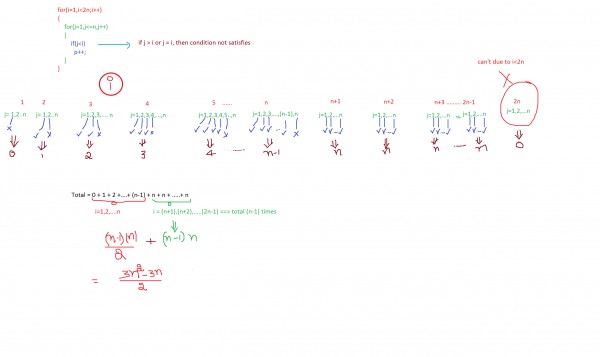 for(i=1,i<2n;i++)
{
for(j=1,j<=n,j++)
{
if(j<i) if j > i or j = i, then condition not satisfies
p++;
}
}
can't due to i<2n
i
1 2 3 4 5 ...... n n+1 n+2 n+3 ........ 2n-1 2n
j= 1,2..n j= 1,2..n j=1,2,3,.... n j=1,2,3,4,...,n j=1,2,3,4,5,..,n j=1,2,3...,(n-1),n j=1,2,...n j=1,2,...n j=1,2,...n j=1,2,...n j=1,2,...n
0 1 2 3 4 ... n-1 n n n ... n 0
Total = 0 + 1 + 2 +....+ (n-1) + n + n + .....+ n
i=1,2,...n i = (n+1),(n+2),.....(2n-1) ==> total (n-1) times
(n-1)(n)/2 + (n-1) n
= 3n²-3n/2